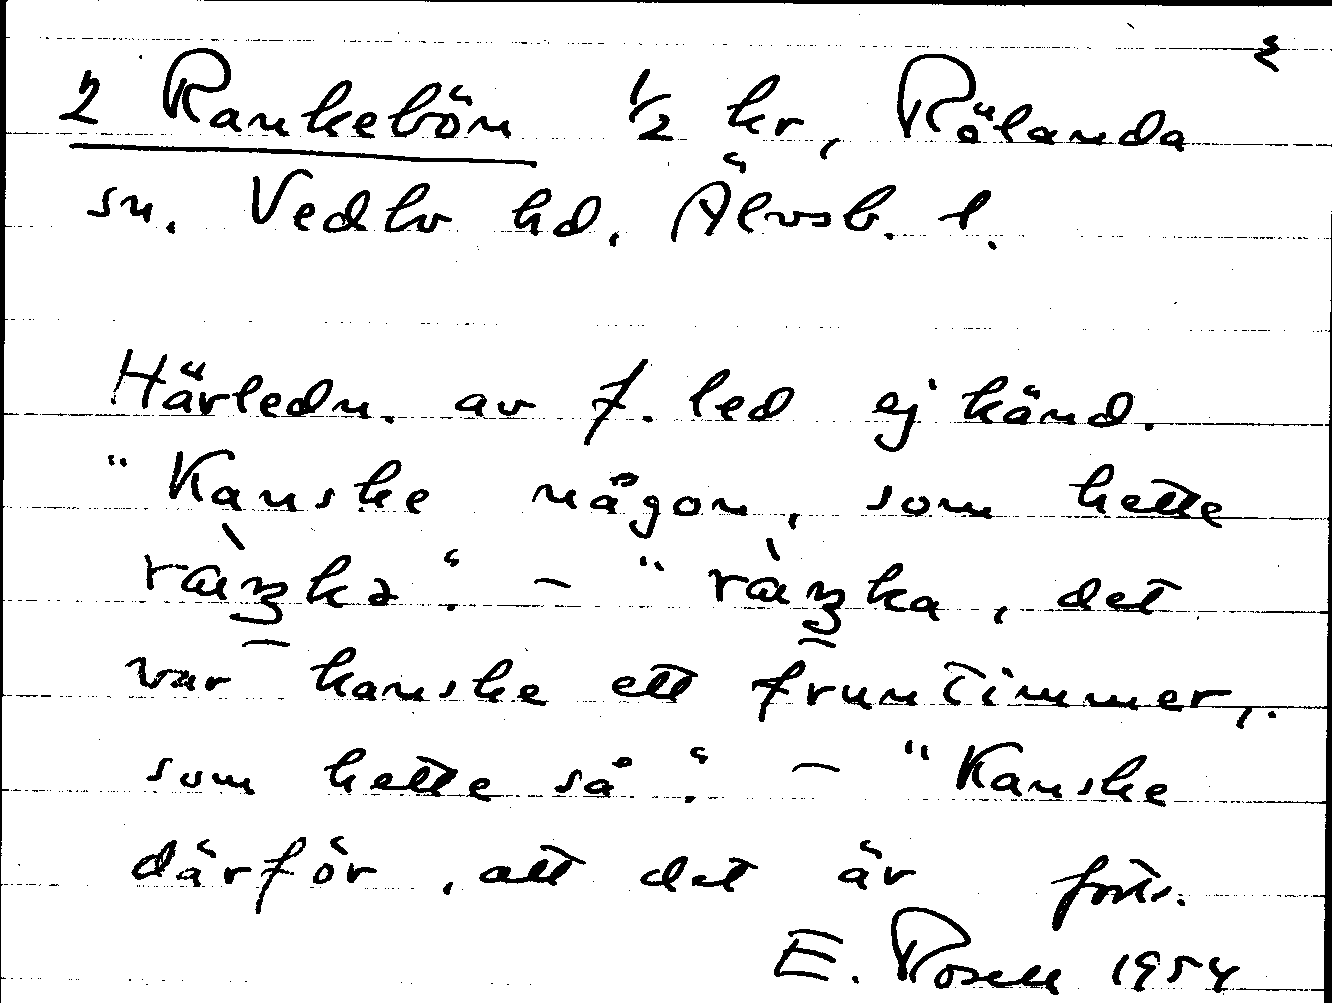 2 Rankebön 1/2 kr, Rölanda
sn. Vedbo hd. Älvsb. l.
Härledn. av f. led ej känd.
"Kanske någon, som hette
". - "
var kanske ett fruntimmer,
som hette så". - "Kanske
därför, att det är forts.
E. Rosell 1954